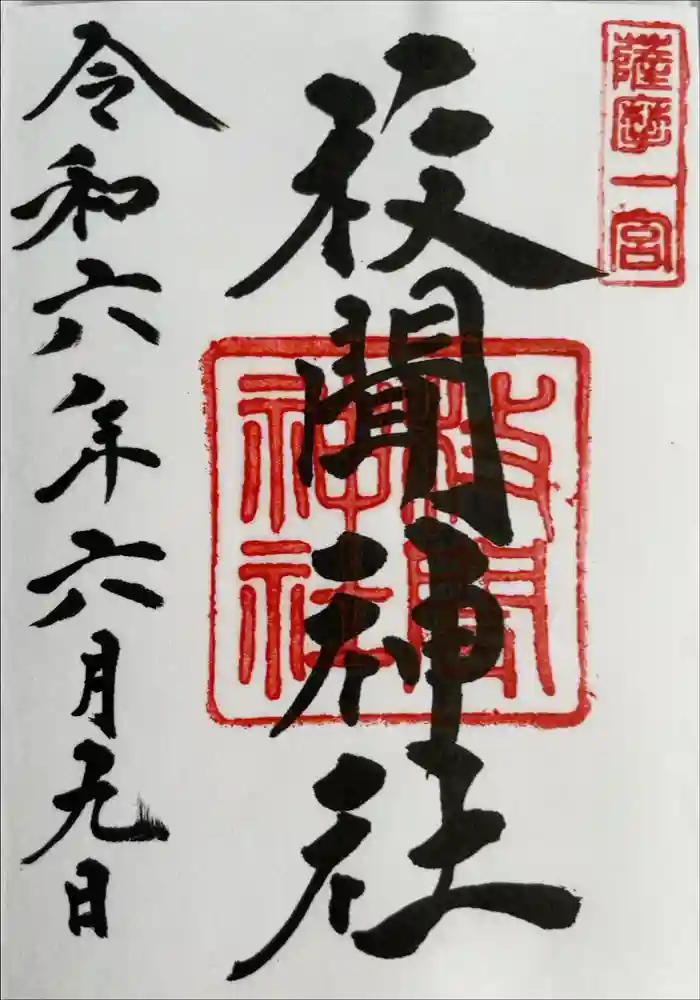 薩摩一宮
枚聞神社
枚聞神社
令和六年六月九日